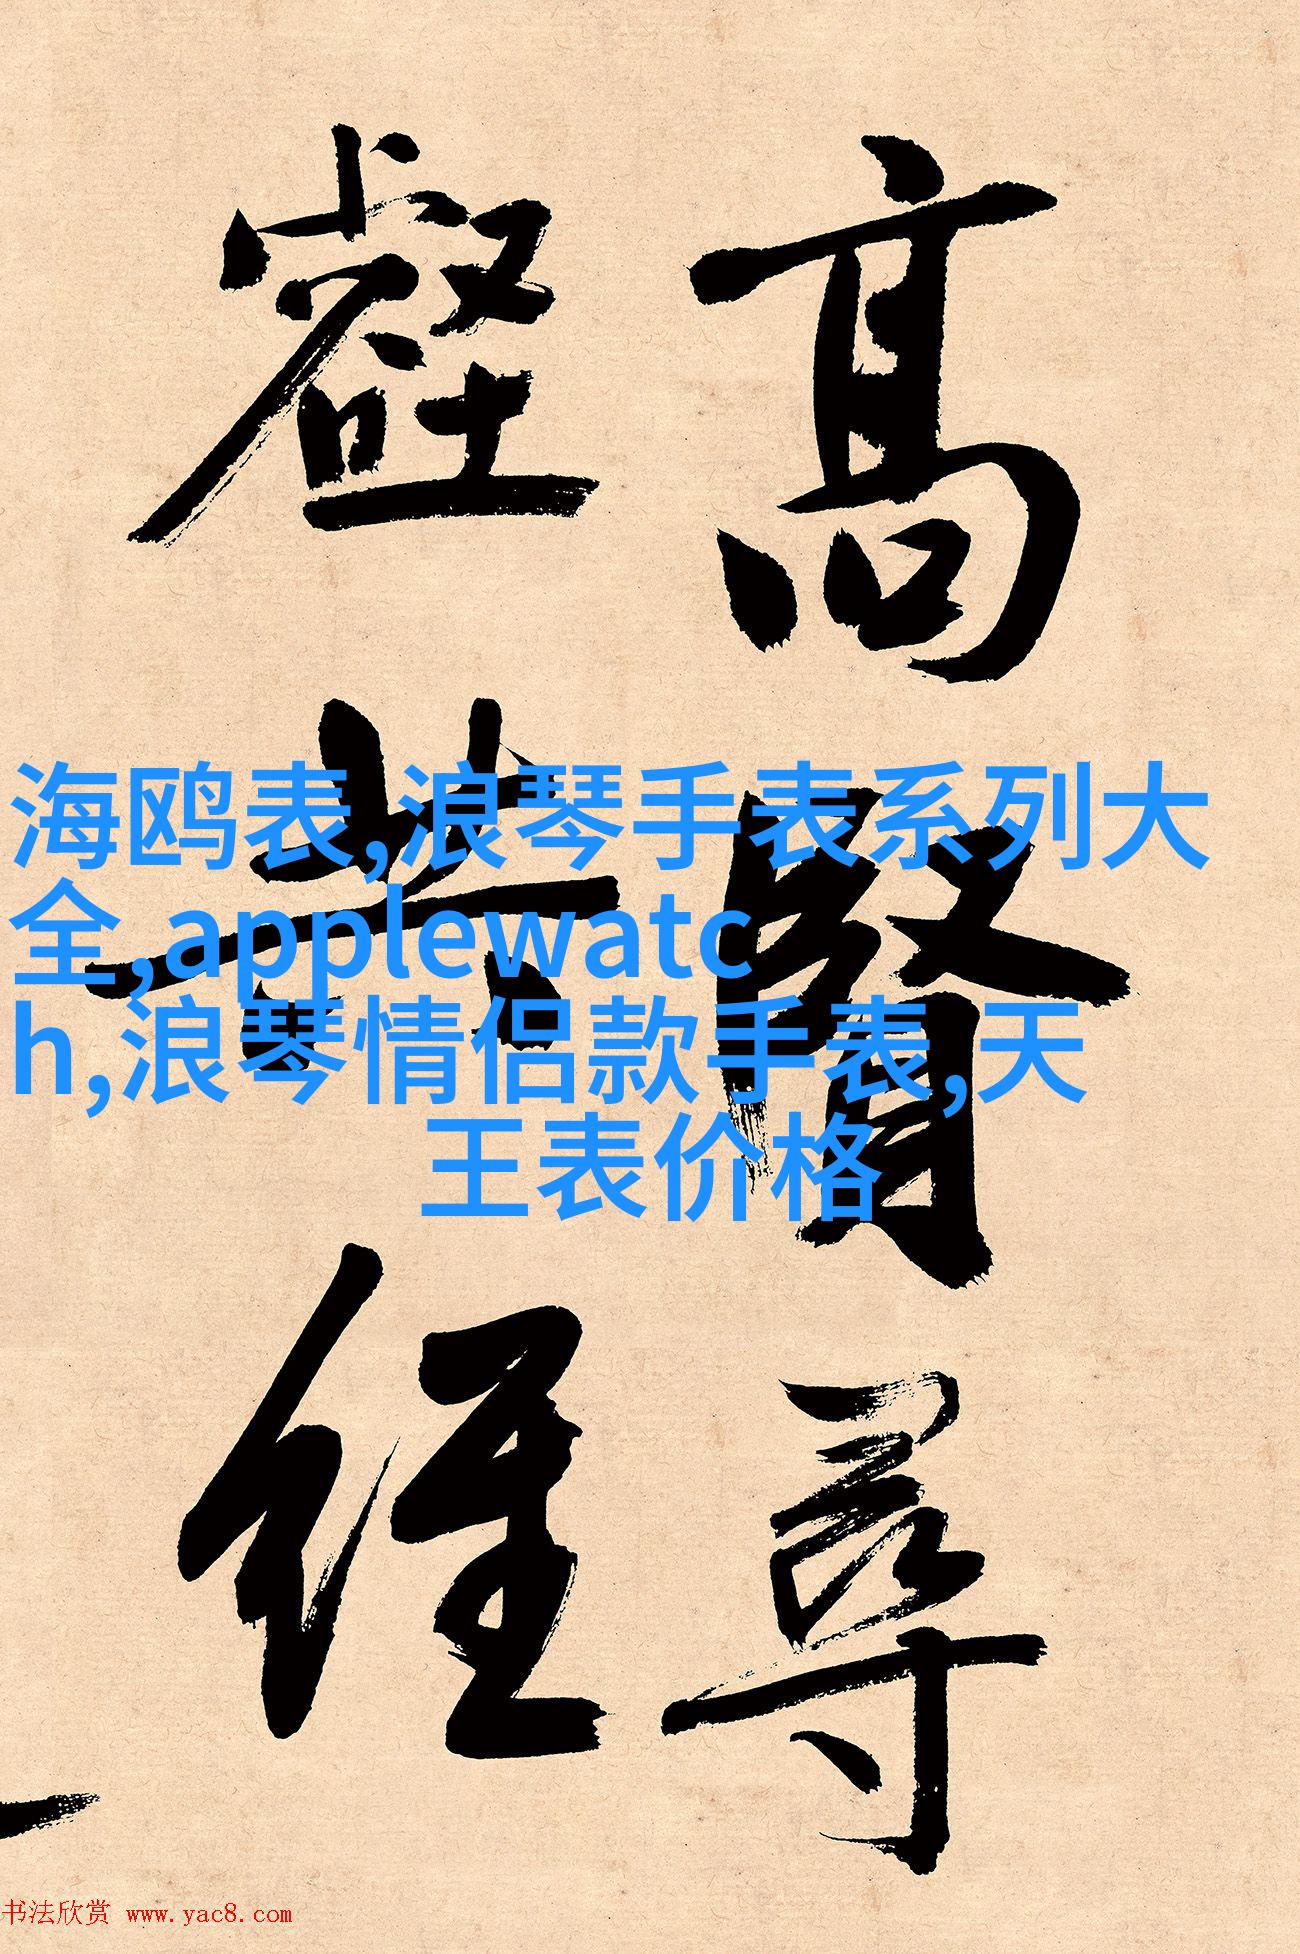 高賢尋
壑共經
海鸥表,浪琴手表系列大
全,applewatc
h,浪琴情侣款手表,天
王表价格
书法欣赏 www.yac8.com